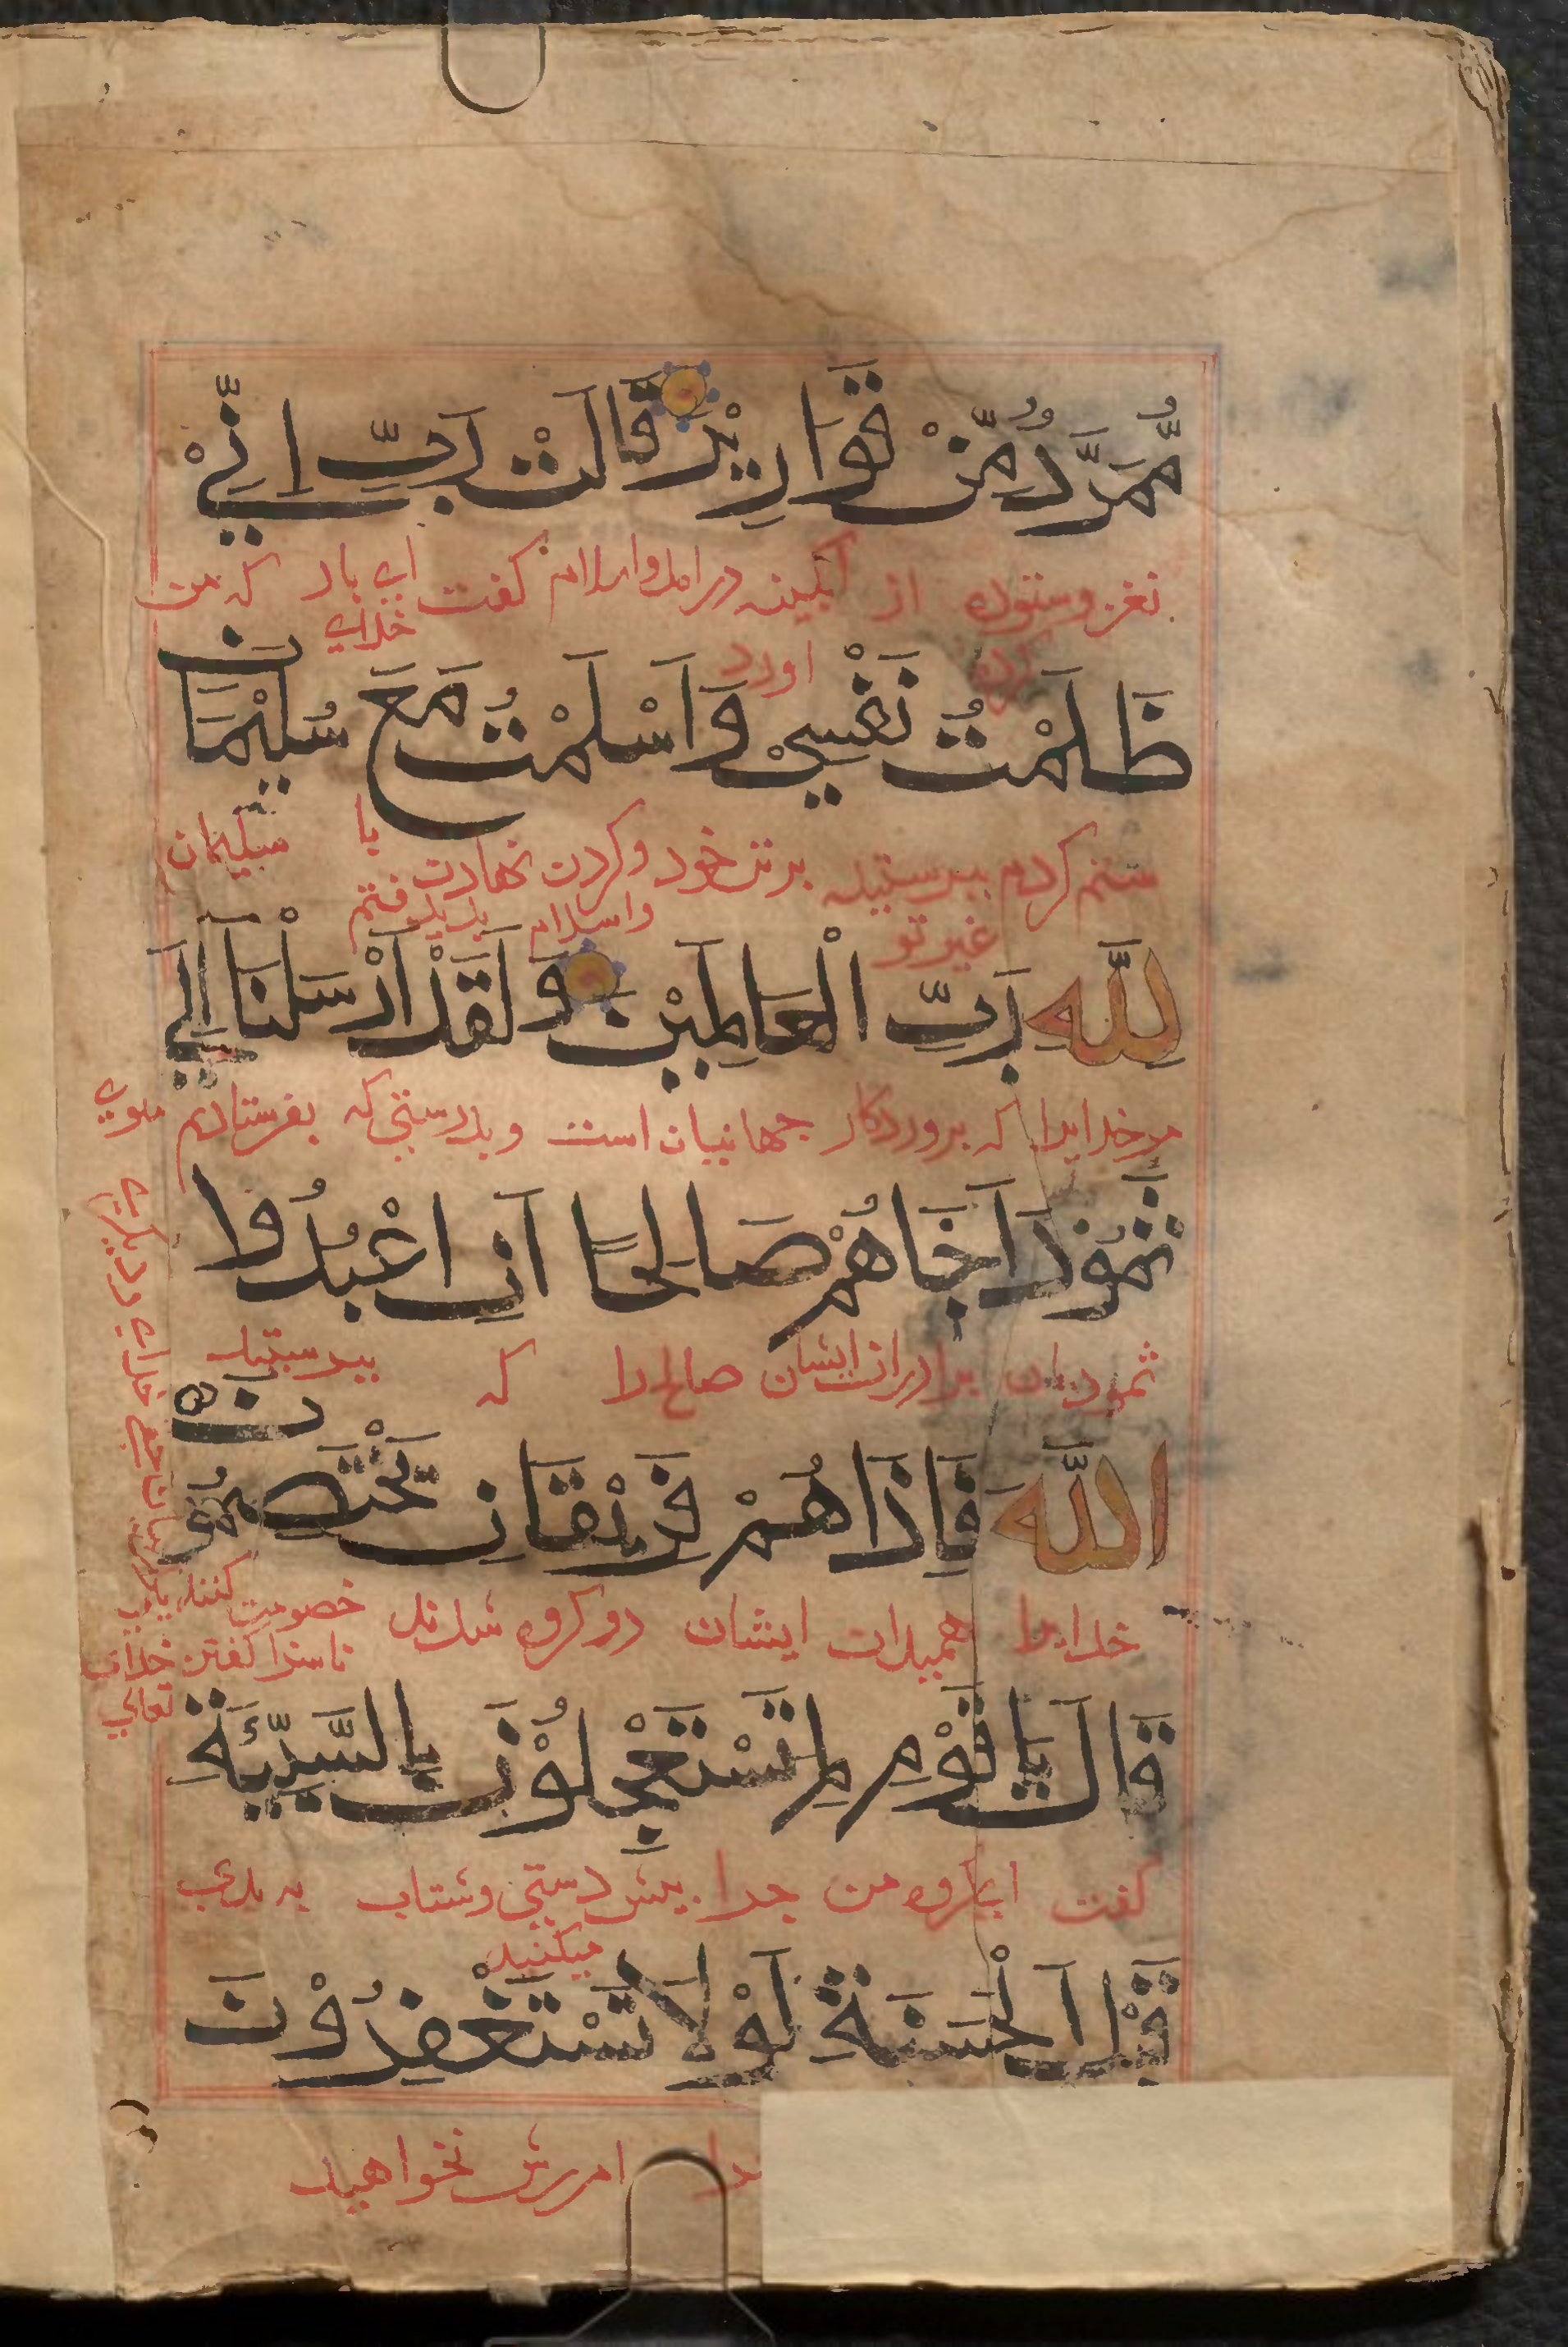 مُّمَرَّدٌ مِّنْ قَوَارِيْرَ قَالَتْ رَبِّ اِنِّيْ
نغز وستوده از آبکینه در امد واسلام کفت ای بار که من
کرده اورد خدای
ظَلَمْتُ نَفْسِيْ وَاَسْلَمْتُ مَعَ سُلَيْمَانَ
ستم کردم ببرستیدن برتن خود وکردن نهادن با سلیمان
غیر تو واسلام بدیرفتم
لِلّٰهِ رَبِّ الْعَالَمِيْنَ وَلَقَدْ اَرْسَلْنَا اِلٰي
مر خدایرا که بروردکار جهانیان است وبدرستی که بفرستادم سوی
ثَمُوْدَ اَخَاهُمْ صَالِحًا اَنِ اعْبُدُوا
ثمودیان برادر ایشان صالح را که ببرستید
اللّٰهَ فَاِذَا هُمْ فَرِيْقَانِ يَخْتَصِمُوْنَ
خدایرا ایشان دو کروه شدند خصومت کنند
ناسزا کفتن خدای
تعالی
قَالَ يَا قَوْمِ لِمَ تَسْتَعْجِلُوْنَ بِالسَّيِّئَةِ
کفت ای کروه من جرا بیش دستی وشتاب به بدی
میکنید
قَبْلَ الْحَسَنَةِ لَوْلَا تَسْتَغْفِرُوْنَ
امرزش نخواهید